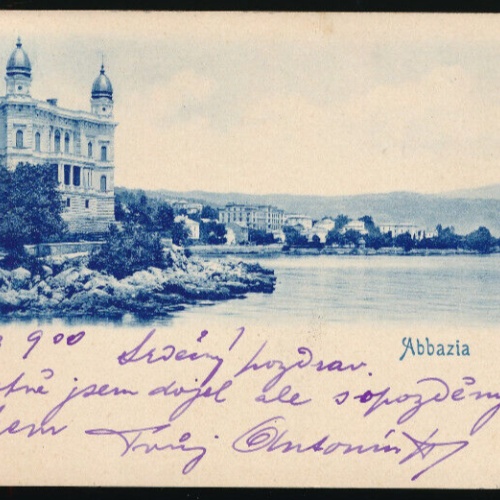 Abbazia
900 Srdečný pozdrav.
tně jsem dojel ale s opozděný
em Tvůj Antonín